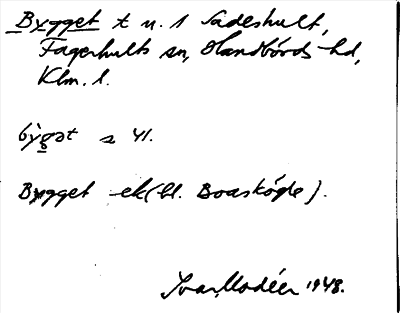 Bygget t u. 1 Sadeshult,
Fagerhults sn, Handbörds hd,
Klm. l.
bygət a 41.
Bygget ek(bl. Boaskögle).
Ivar Modéer 1948.